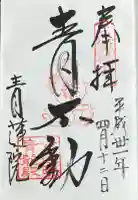 奉拝
平成卅一年
四月十二日
青不動
青蓮院